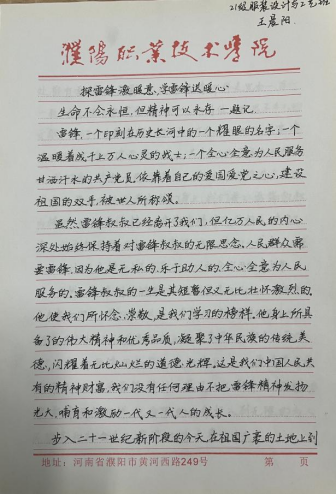 21级服装设计与工艺班
王晨阳
濮阳职业技术学院
探雷锋激暖意、学雷锋送暖心
生命不会永恒,但精神可以永存 一题记.
雷锋,一个印刻在历史长河中的一个耀眼的名字;一个
温暖着成千上万人心灵的战士;一个全心全意为人民服务
甘洒汗水的共产党员,依靠着自己的爱国爱党之心,建设
祖国的双手,被世人所称颂。
虽然雷锋叔叔已经离开了我们,但亿万人民的内心
深处始终保持着对雷锋叔叔的无限思念,人民群众需
要雷锋,因为他是无私的,乐于助人的,全心全意为人民
服务的.雷锋叔叔的一生是其短暂但又无比壮怀激烈的,
他使我们所怀念,崇敬,是我们学习的榜样,他身上所具
备了的伟大精神和优秀品质,凝聚了中华民族的传统美
德,闪耀着无比灿烂的道德光辉.这是我们中国人民共
有的精神财富,我们没有任何理由不把雷锋精神发扬
光大,哺育和激励一代又一代人的成长。
步入二十一世纪新阶段的今天,在祖国广袤的土地上到
地址:河南省濮阳市黄河西路249号 第 页